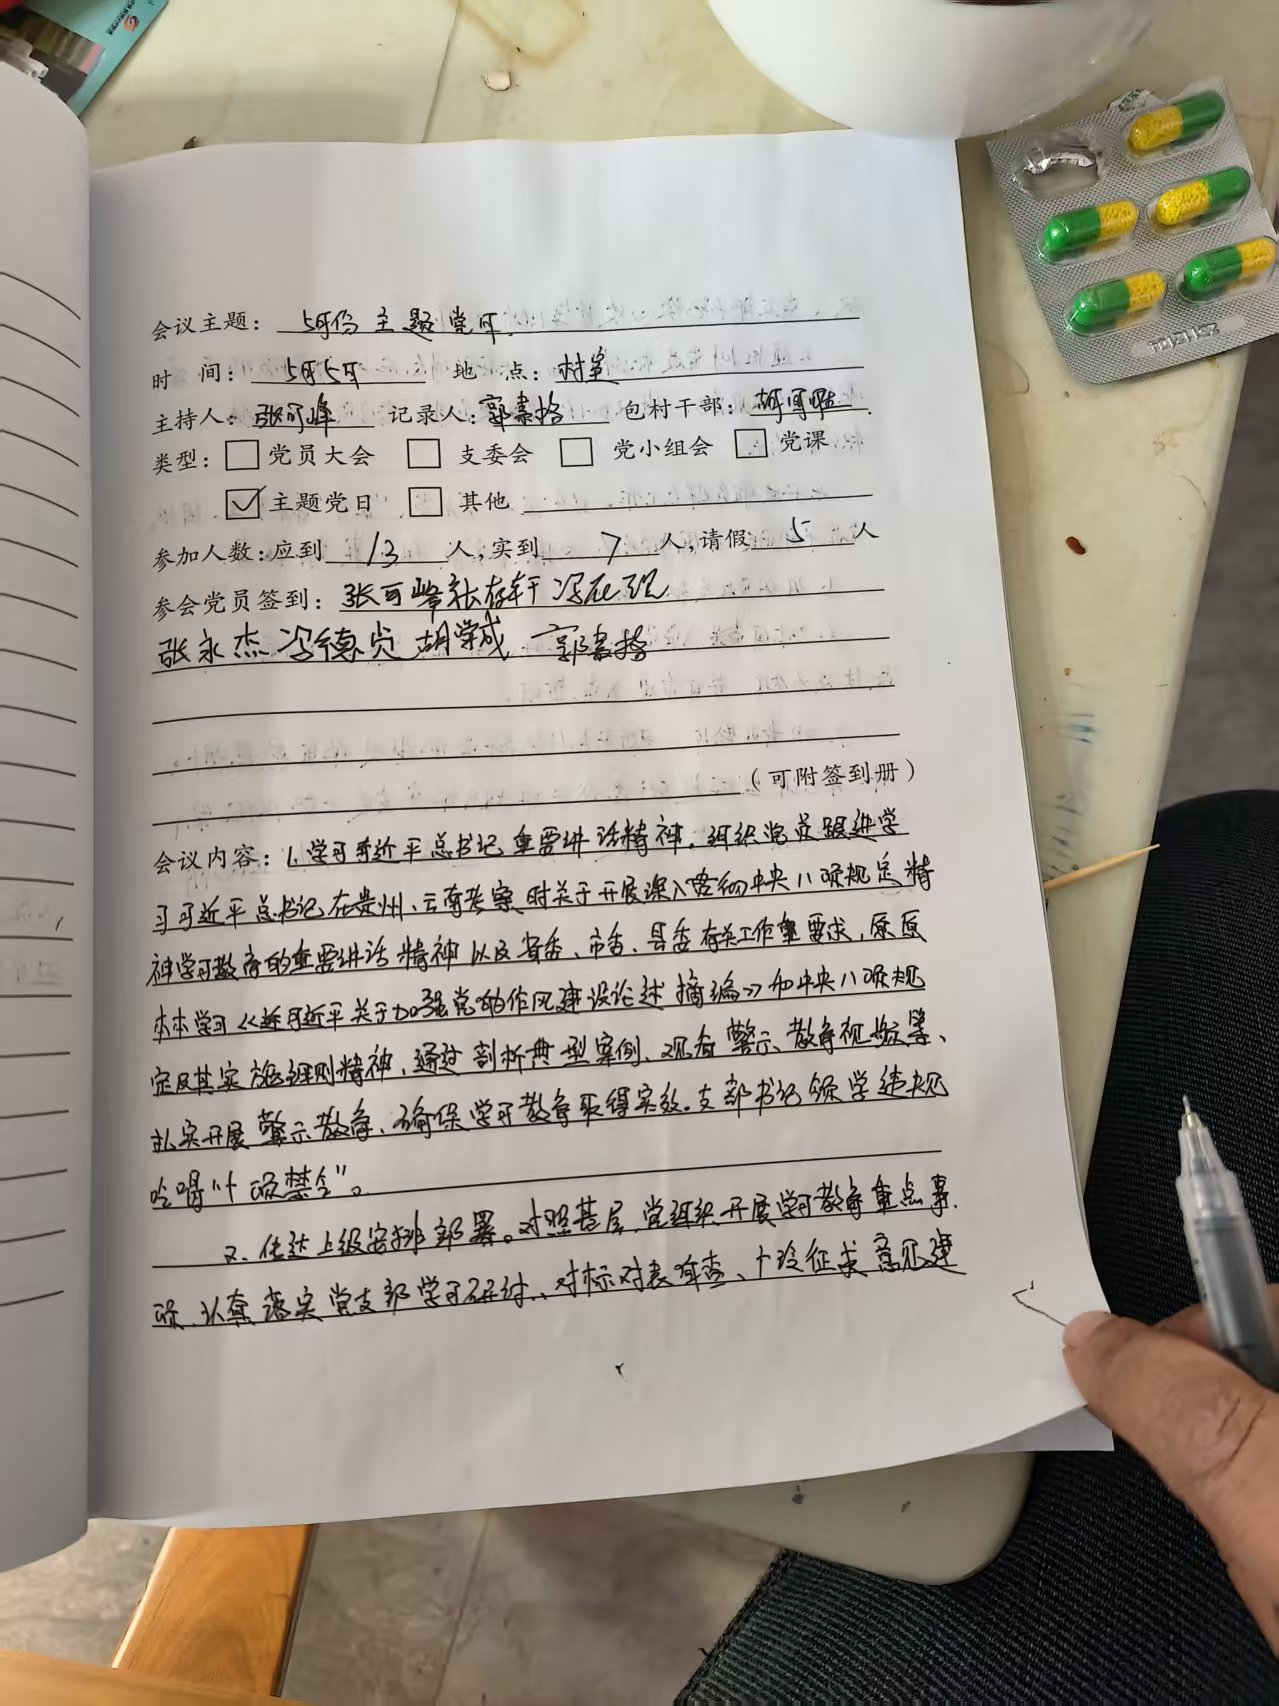 会议主题： 5月份 主题党日
时 间： 5月5日 地 点： 村室
主持人： 张可峰 记录人： 郭素格 包村干部： 胡
类型： □党员大会 □ 支委会 □ 党小组会 □党课
☑主题党日 □ 其他
参加人数：应到 13 人，实到 7 人，请假 5 人
参会党员签到： 张可峰 张存轩 冯在现
张永杰 冯德贞 胡学成 郭素格
（可附签到册）
会议内容： 1.学习习近平总书记重要讲话精神。组织党员跟进学
习习近平总书记在贵州、云南考察时关于开展深入贯彻中央八项规定精
神学习教育的重要讲话精神以及省委、市委、县委有关工作重要求，原原
本本学习《习近平关于加强党的作风建设论述摘编》和中央八项规
定及其实施细则精神，通过剖析典型案例、观看警示教育视频等、
扎实开展警示教育、确保学习教育取得实效。支部书记领学违规
吃喝“十项禁令”。
2、传达上级安排部署。对照基层党组织开展学习教育重点事
项、认真落实党支部学习研讨、对标对表 查、 征求意见建